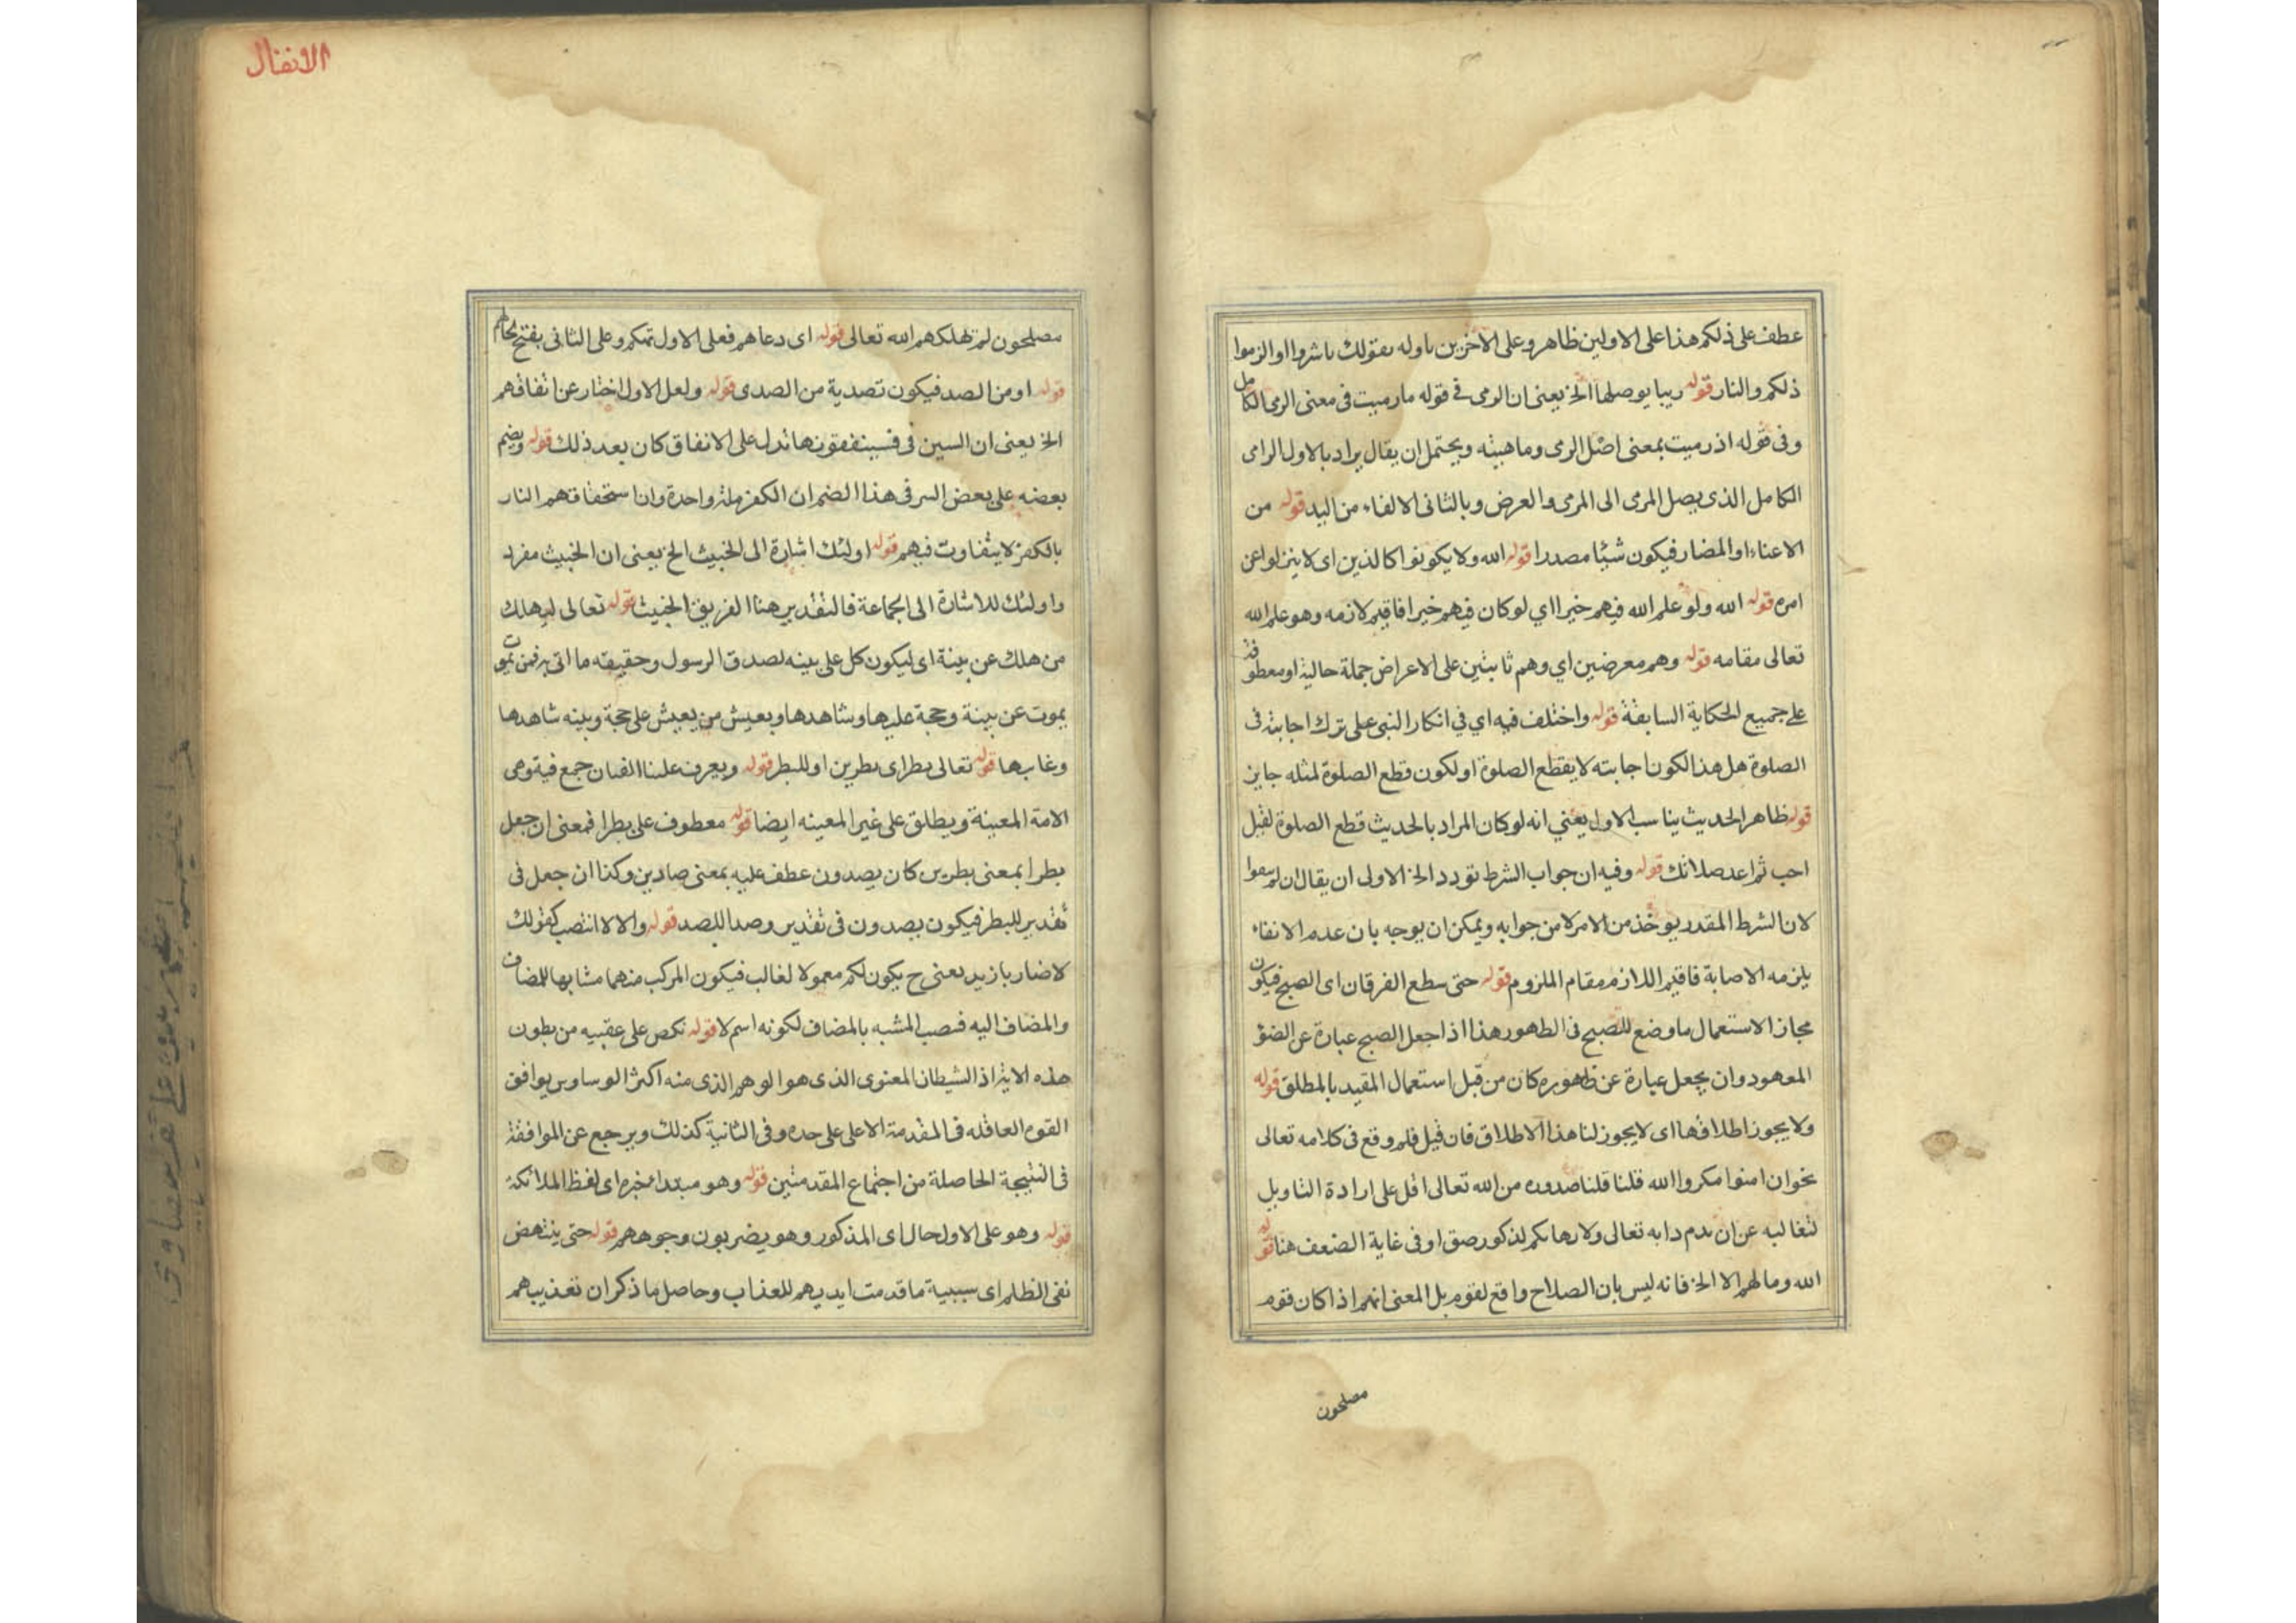 عطف على ذلكم هذا على الاولين ظاهر وعلى الاخرين تاوله بقولك باشروا او الزموا
ذلكم والنار قوله ريبا يوصلها الخ يعنى ان الرمى فى قوله مارميت فى معنى الرمى الكامل
وفى قوله اذ رميت بمعنى اصل الرمى وماهيته ويحتمل ان يقال يراد بالاول الرامى
الكامل الذى يصل المرمى الى المرمى والعرض وبالثانى الالقاء من اليد قوله من
الاعناء او المضار فيكون شيئا مصدرا قوله الله ولا يكونوا كالذين اى لا ينزلوا عن
امره قوله الله ولو علم الله فيهم خيرا اي لو كان فيهم خيرا فاقيم لازمه وهو علم الله
تعالى مقامه قوله وهم معرضين اي وهم ثابتين على الاعراض جملة حالية او معطوفة
على جميع الحكاية السابقة قوله واختلف فيه اي في انكار النبى على ترك اجابته فى
الصلوة هل هذا لكون اجابته لا يقطع الصلوة او لكون قطع الصلوة لمثله جايز
قوله ظاهر الحديث يناسب الاول يعني انه لو كان المراد بالحديث قطع الصلوة لقيل
احب ثم اعد صلاتك قوله وفيه ان جواب الشرط تودد الخ الاولى ان يقال ان لم
لان الشرط المقدر يوخذ من الامر لا من جوابه ويمكن ان يوجه بان عدم الاتقاء
يلزمه الاصابة فاقيم اللازم مقام الملزوم قوله حتى سطع الفرقان اى الصبح فيكون
مجاز الاستعمال ما وضع للصبح فى الظهور هذا اذا جعل الصبح عبارة عن الضوء
المعهود وان يجعل عبارة عن ظهوره كان من قبل استعمال المقيد بالمطلق قوله
ولا يجوز اطلاقها اى لا يجوز لنا هذا الاطلاق فان قيل فلم وقع فى كلامه تعالى
نحو ان امنوا مكروا الله قلنا قلنا صدوره من الله تعالى اقل على ارادة التاويل
لتغاليه عن ان دابه تعالى ولا رها لذكور صق او فى غاية الضعف هنا قوله
الله وما لهم الا الخ فانه ليس بان الصلاح واقع لقوم بل المعنى انهم اذا كان قوم
مصلحون
الانفال
مصلحون لم تهلكهم الله تعالى قوله اى دعاهم فعلى الاول تمكم وعلى الثانى بفتح
قوله او من الصد فيكون تصدية من الصدى قوله ولعل الاول اخبار عن انفاقهم
الخ يعنى ان السين فى فسينفقونها تدل على الانفاق كان بعد ذلك قوله ويضم
بعضه على بعض السر فى هذا الضم ان الكفر ملة واحدة وان استحقاقهم النار
بالكفر لا يتفاوت فيهم قوله اولئك اشارة الى الخبيث الخ يعنى ان الخبيث مفرد
واولئك للاشارة الى الجماعة فالتقدير هنا الفريق الخبيث قوله تعالى ليهلك
من هلك عن بينة اى ليكون كل على بينه لصدق الرسول وحقيقه ما اتى به فمن يموت
يموت عن بينة وحجة عليها وشاهدها ويعيش من يعيش على حجة وبينه شاهدها
وغابها قوله تعالى بطرا اى بطرين او للبطر قوله ويعرف علينا القيان جمع فيتوهى
الامة المعينة ويطلق على غير المعينه ايضا قوله معطوف على بطرا فمعنى ان جعل
بطرا بمعنى بطرين كان يصدون عطف عليه بمعنى صادين وكذا ان جعل فى
تقدير للبطر فيكون يصدون فى تقدير وصدا للصد قوله والا لا انتصب كقولك
لا ضاربا زيد يعنى ح يكون لكم معمولا لغالب فيكون المركب منهما مشابها للمضاف
والمضاف اليه فنصب المشبه بالمضاف لكونه اسم لا قوله نكص على عقبيه من بطون
هذه الاية اذ الشيطان المعنوى الذى هو الوهم الذى منه اكثر الوساوس يوافق
القوم العاقله فى المقدمة الاعلى على حده وفى الثانية كذلك ويرجع عن الموافقة
فى النتيجة الحاصلة من اجتماع المقدمتين قوله وهو مبتدا مخبره اى لفظ الملائكة
قوله وهو على الاول حال اى المذكور وهو يضربون وجوههم قوله حتى ينتهض
نفى الظلم اى سببية ما قدمت ايديهم للعذاب وحاصل ما ذكر ان تعذيبهم